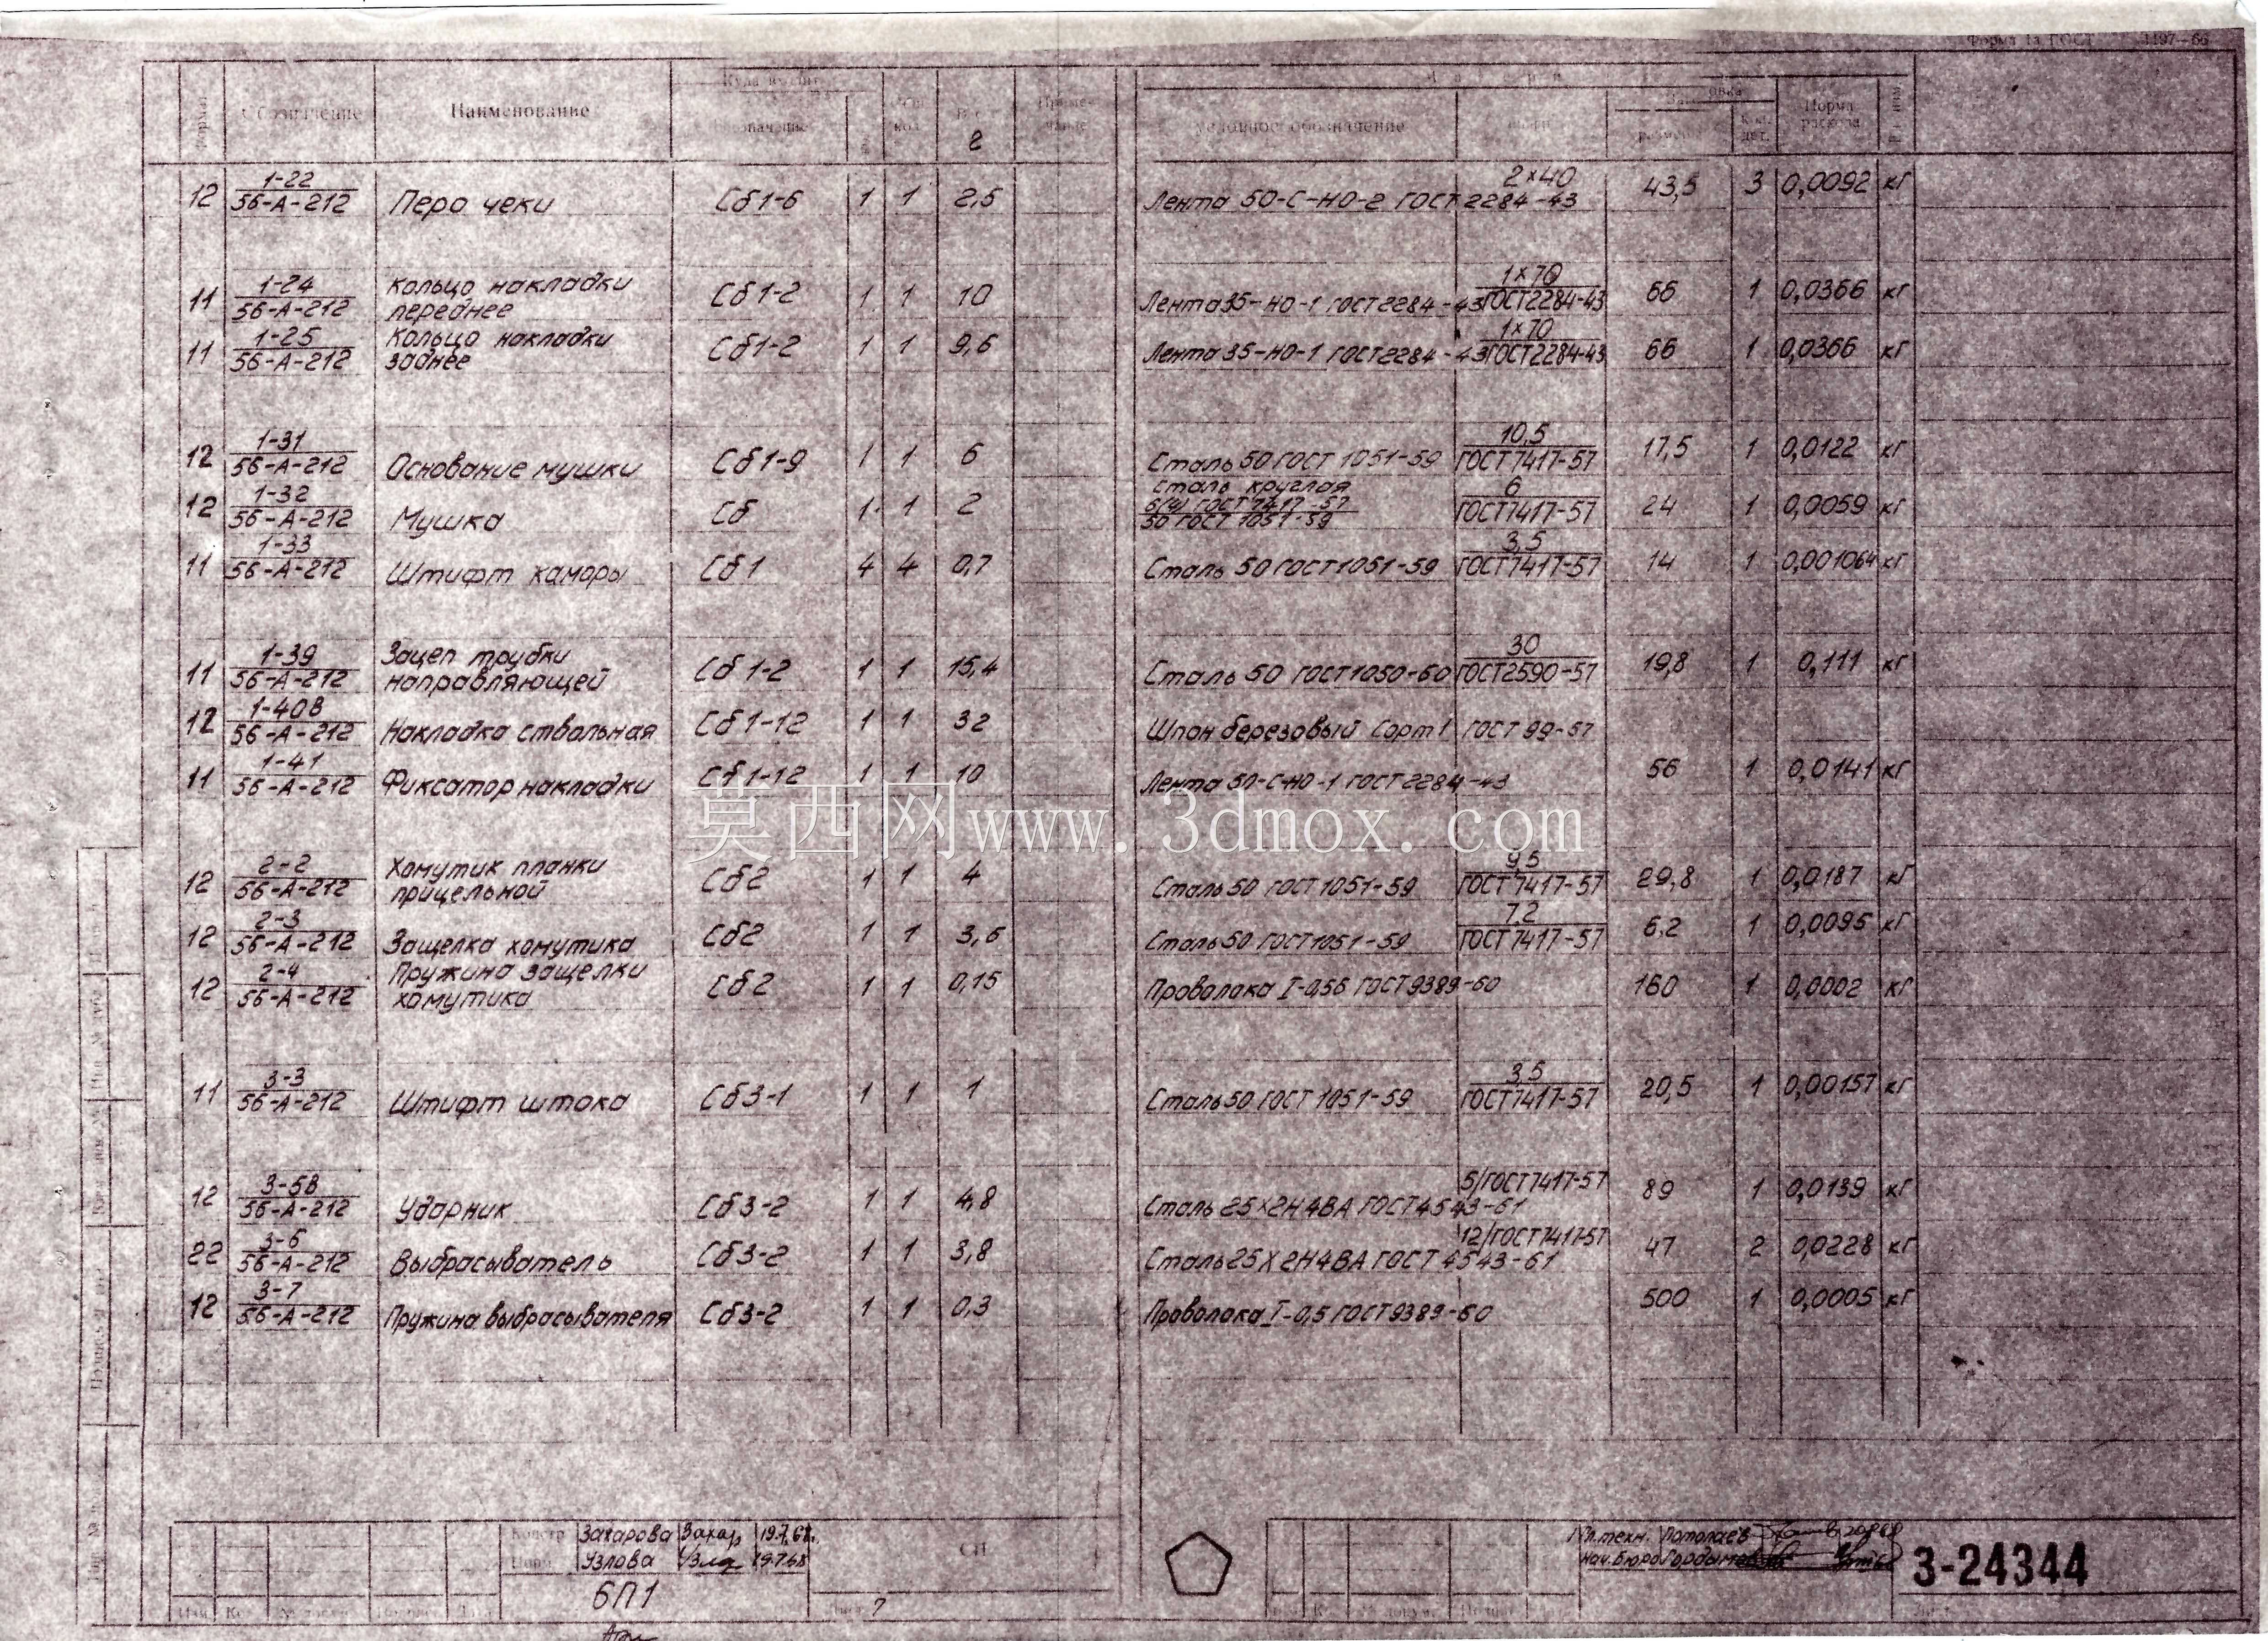 Форма 1а ГОСТ 3497-66
Обозначение Наименование
г
Условное обозначение Норма расхода
12 1-22 56-А-212 Перо чеки Сб1-6 1 1 2,5 Лента 50-С-НО-2 ГОСТ 2284-43 2×40 43,5 3 0,0092 кг
11 1-24 56-А-212 Кольцо накладки переднее Сб1-2 1 1 10 Лента 35-НО-1 ГОСТ2284-43 1×70 ГОСТ2284-43 66 1 0,0366 кг
11 1-25 56-А-212 Кольцо накладки заднее Сб1-2 1 1 9,6 Лента 35-НО-1 ГОСТ2284-43 1×70 ГОСТ2284-43 66 1 0,0366 кг
12 1-31 56-А-212 Основание мушки Сб1-9 1 1 6 Сталь 50 ГОСТ 1051-59 10,5 ГОСТ7417-57 17,5 1 0,0122 кг
12 1-32 56-А-212 Мушка Сб 1 1 2 Сталь круглая 6(4) ГОСТ 7417-57 50 ГОСТ 1051-59 6 ГОСТ7417-57 24 1 0,0059 кг
11 1-33 56-А-212 Штифт каморы Сб1 4 4 0,7 Сталь 50 ГОСТ1051-59 3,5 ГОСТ7417-57 14 1 0,001064 кг
11 1-39 56-А-212 Зацеп трубки направляющей Сб1-2 1 1 15,4 Сталь 50 ГОСТ1050-60 30 ГОСТ2590-57 19,8 1 0,111 кг
12 1-40В 56-А-212 Накладка ствольная Сб1-12 1 1 32 Шпон березовый Сорт 1 ГОСТ 99-57
11 1-41 56-А-212 Фиксатор накладки Сб1-12 1 1 10 Лента 50-С-НО-1 ГОСТ2284-43 56 1 0,0141 кг
莫西网www.3dmox.com
12 2-2 56-А-212 Хомутик планки прицельной Сб2 1 1 4 Сталь 50 ГОСТ 1051-59 9,5 ГОСТ 7417-57 29,8 1 0,0187 кг
12 2-3 56-А-212 Защелка хомутика Сб2 1 1 3,6 Сталь 50 ГОСТ1051-59 7,2 ГОСТ7417-57 6.2 1 0,0095 кг
12 2-4 56-А-212 Пружина защелки хомутика Сб2 1 1 0,15 Проволока I-0,56 ГОСТ9389-60 160 1 0,0002 кг
11 3-3 56-А-212 Штифт штока Сб3-1 1 1 1 Сталь 50 ГОСТ 1051-59 3,5 ГОСТ7417-57 20,5 1 0,00157 кг
12 3-5В 56-А-212 Ударник Сб3-2 1 1 4,8 Сталь 25Х2Н4ВА ГОСТ4543-61 5/ГОСТ7417-57 89 1 0,0139 кг
22 3-6 56-А-212 Выбрасыватель Сб3-2 1 1 3,8 Сталь 25Х2Н4ВА ГОСТ 4543-61 12/ГОСТ7417-57 47 2 0,0228 кг
12 3-7 56-А-212 Пружина выбрасывателя Сб3-2 1 1 0,3 Проволока I-0,5 ГОСТ9389-60 500 1 0,0005 кг
Констр Захарова Захар 19.7.68.
Узлова 19.7.68
6П1
СП
Лист 7
Гл.техн.
Нач.бюро
3-24344